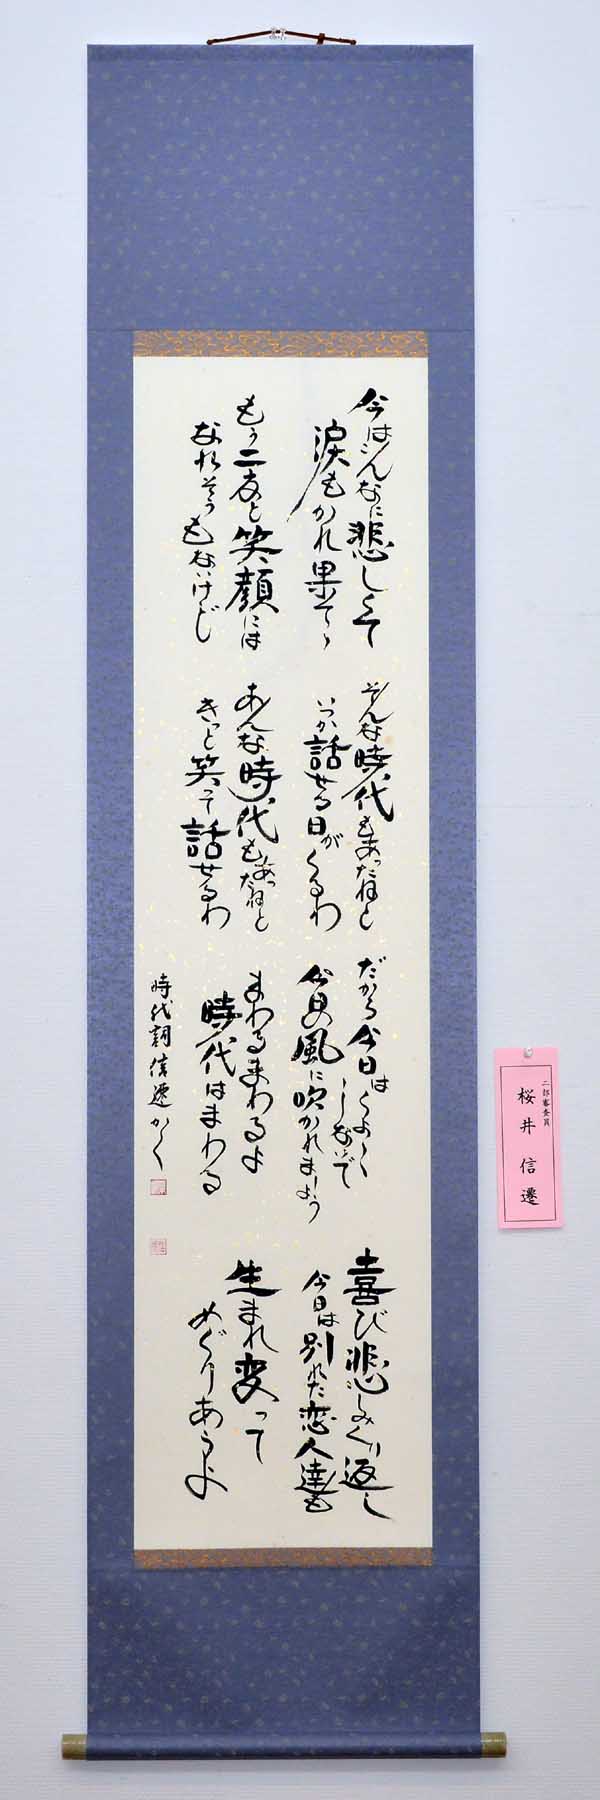 今はこんなに悲しくて
涙もかれ果てゝ
もう二度と笑顔には
なれそうもないけど
そんな時代もあったねと
いつか話せる日がくるわ
あんな時代もあったねと
きっと笑って話せるわ
だから今日はくよくよ
しないで
今日の風に吹かれましょう
まわるまわるよ
時代はまわる
喜び悲しみくり返し
今日は別れた恋人達も
生まれ変って
めぐりあうよ
時代詞 信遷かく
二部審査員
桜井 信遷